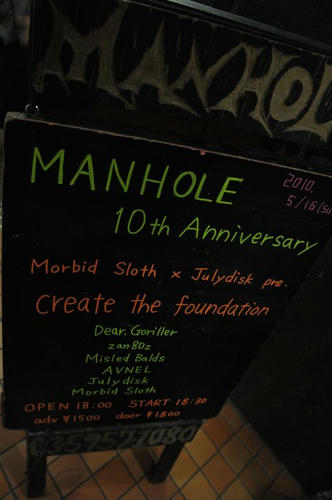 MANHOLE
MANHOLE
2010.
5/16 (su
10th Anniversary
Morbid Sloth x Julydisk pre.
Create the foundation
Dear. Goriller
zan80z
Misled Balds
AVNEL
Julydisk
Morbid Sloth
OPEN 18:00 START 18:30
adv ¥1500 door ¥1800